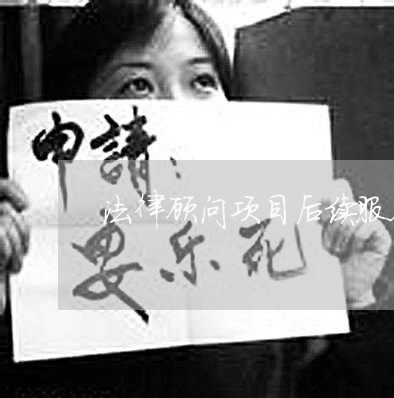 申請：
法律顾问项目后续服
安乐死